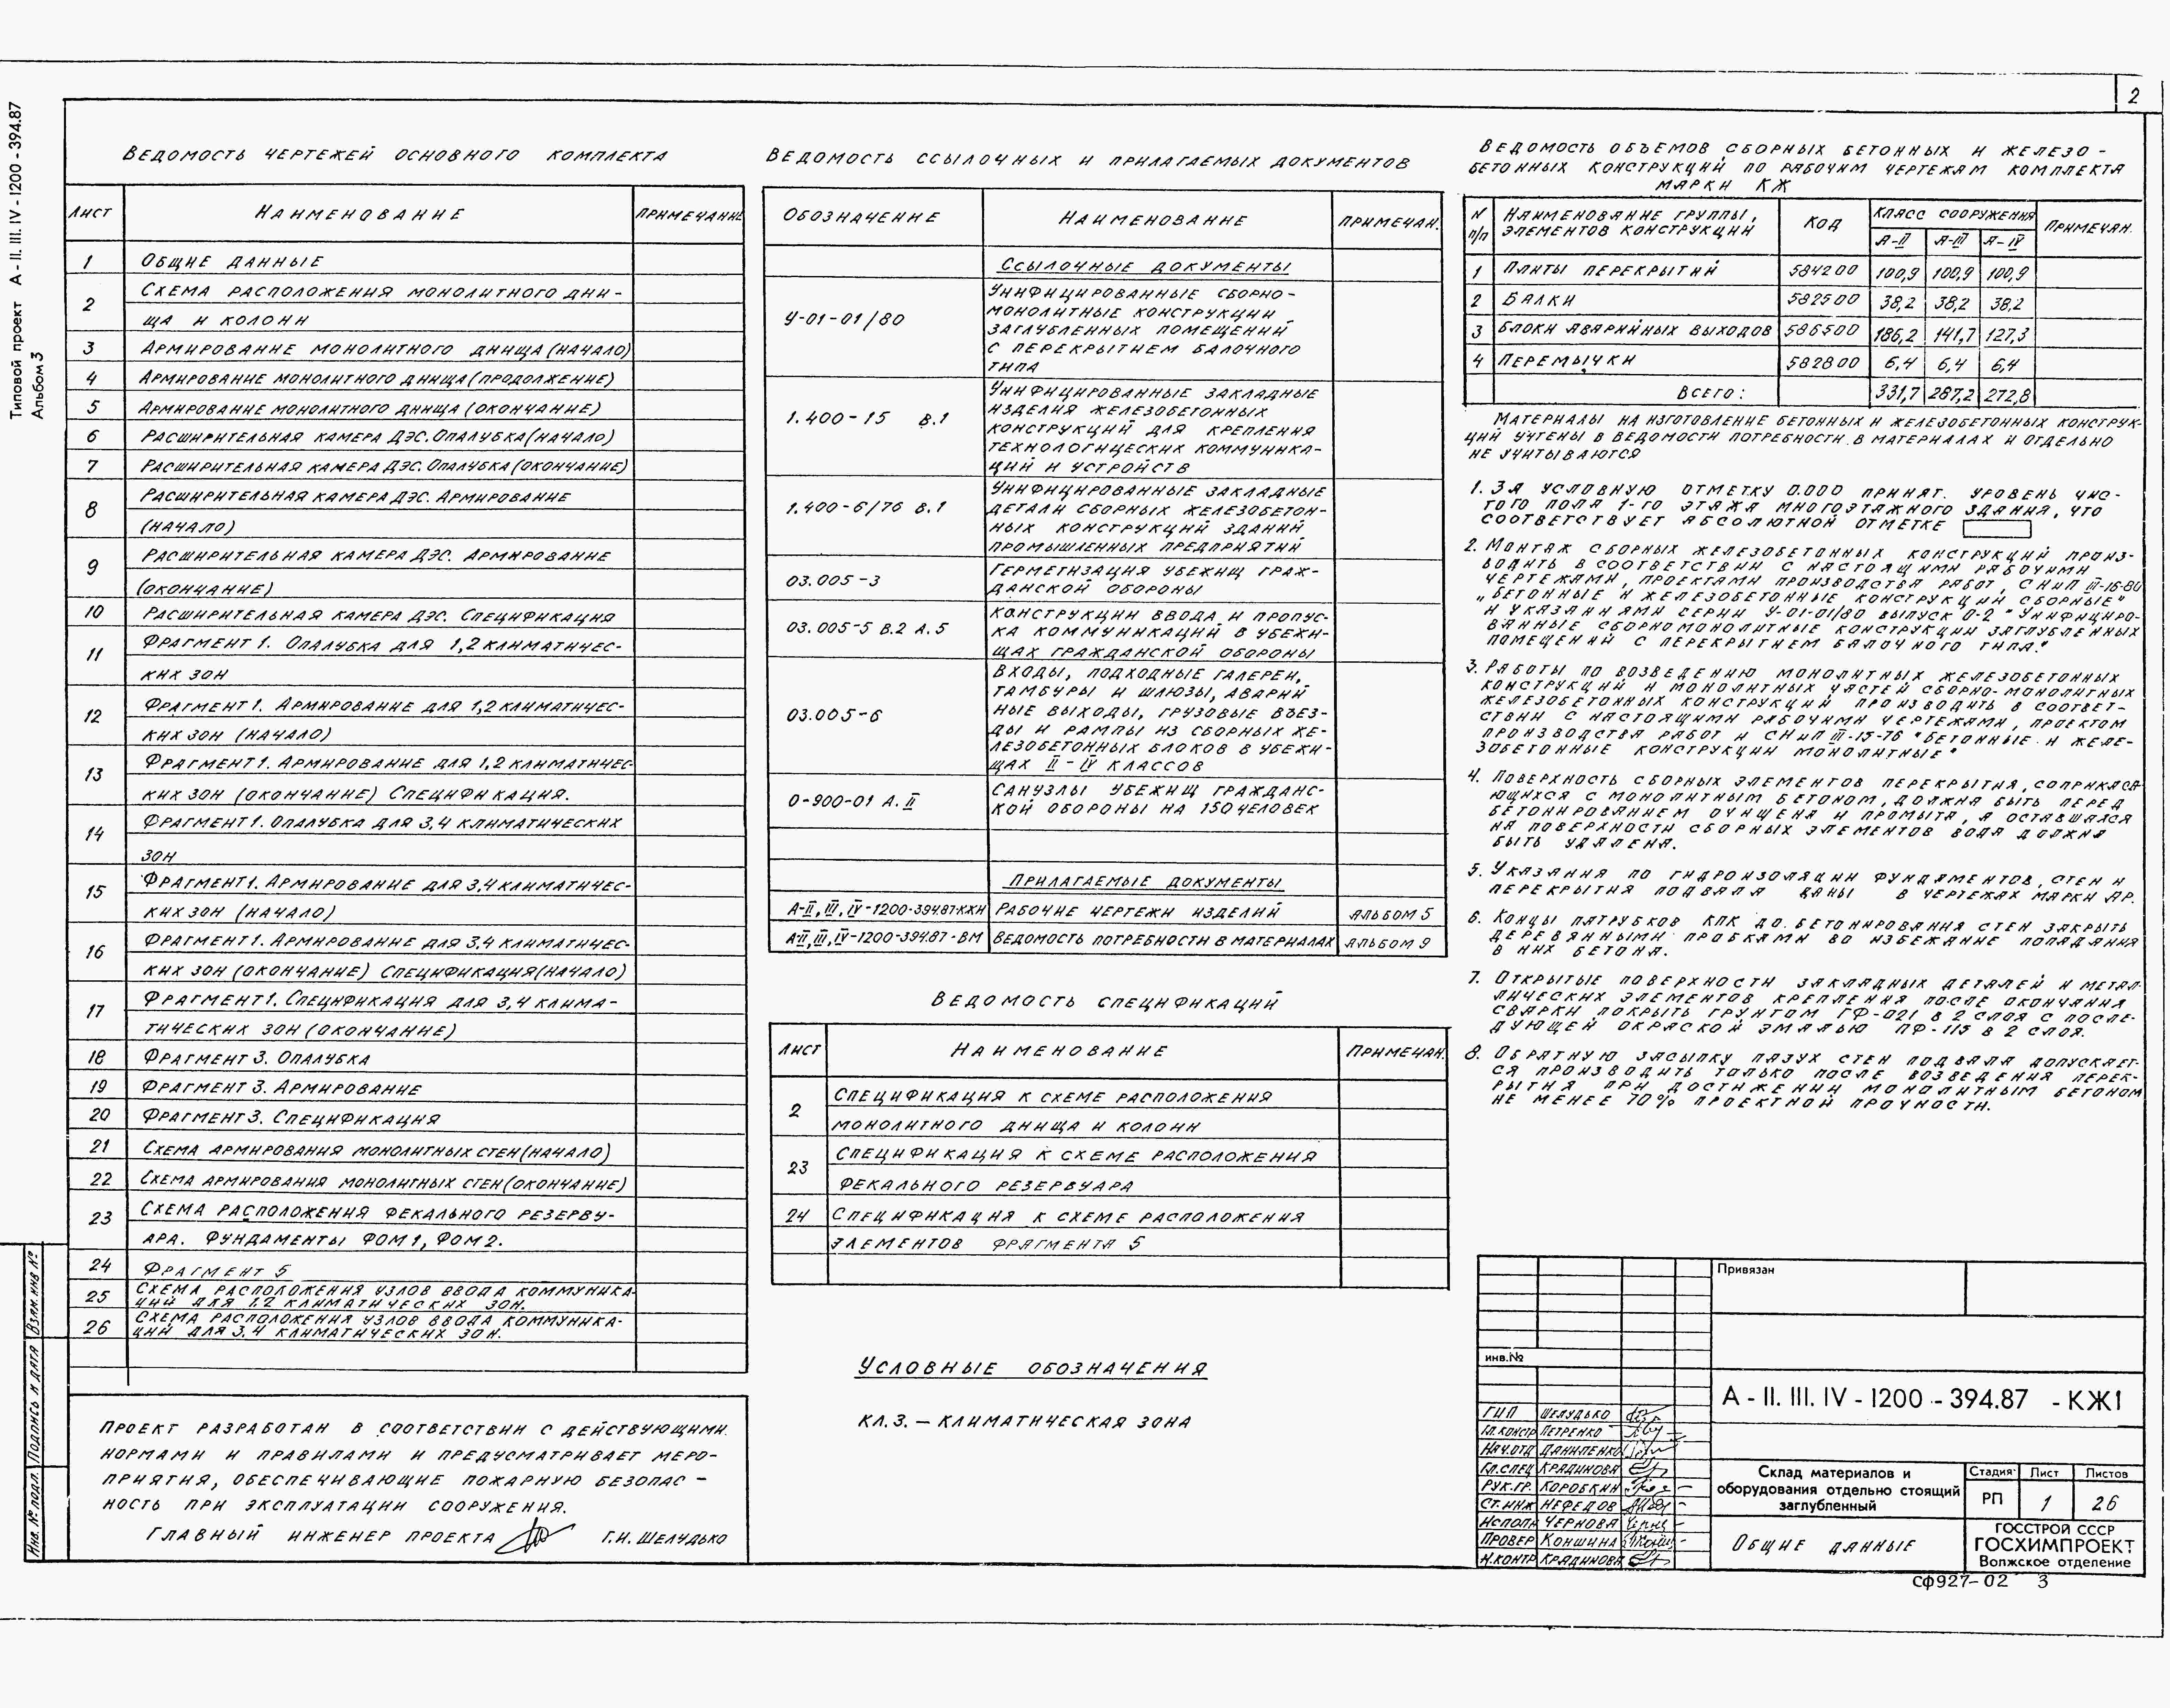 2
Типовой проект А-II.III.IV-1200-394.87
Альбом 3
Ведомость чертежей основного комплекта
Лист Наименование Примечание
1 Общие данные
2 Схема расположения монолитного дни-
ща и колонн
3 Армирование монолитного днища (начало)
4 Армирование монолитного днища (продолжение)
5 Армирование монолитного днища (окончание)
6 Расширительная камера ДЭС. Опалубка (начало)
7 Расширительная камера ДЭС. Опалубка (окончание)
8 Расширительная камера ДЭС. Армирование
(начало)
9 Расширительная камера ДЭС. Армирование
(окончание)
10 Расширительная камера ДЭС. Спецификация
11 Фрагмент 1. Опалубка для 1,2 климатичес-
ких зон
12 Фрагмент 1. Армирование для 1,2 климатичес-
ких зон (начало)
13 Фрагмент 1. Армирование для 1,2 климатичес-
ких зон (окончание) Спецификация.
14 Фрагмент 1. Опалубка для 3,4 климатических
зон
15 Фрагмент 1. Армирование для 3,4 климатичес-
ких зон (начало)
16 Фрагмент 1. Армирование для 3,4 климатичес-
ких зон (окончание) Спецификация (начало)
17 Фрагмент 1. Спецификация для 3,4 клима-
тических зон (окончание)
18 Фрагмент 3. Опалубка
19 Фрагмент 3. Армирование
20 Фрагмент 3. Спецификация
21 Схема армирования монолитных стен (начало)
22 Схема армирования монолитных стен (окончание)
23 Схема расположения фекального резерву-
ара. Фундаменты ФОМ1, ФОМ2.
24 Фрагмент 5
25 Схема расположения узлов ввода коммуника-
ций для 1,2 климатических зон.
26 Схема расположения узлов ввода коммуника-
ций для 3,4 климатических зон.
Проект разработан в соответствии с действующими
нормами и правилами и предусматривает меро-
приятия, обеспечивающие пожарную безопас-
ность при эксплуатации сооружения.
Главный инженер проекта Г.И. Шелудько
Взам. инв №
Подпись и дата
Инв. № подл.
Ведомость ссылочных и прилагаемых документов
Обозначение Наименование Примечан.
Ссылочные документы
У-01-01/80 Унифицированные сборно-
монолитные конструкции
заглубленных помещений
с перекрытием балочного
типа
1.400-15 в.1 Унифицированные закладные
изделия железобетонных
конструкций для крепления
технологических коммуника-
ций и устройств
1.400-6/76 в.1 Унифицированные закладные
детали сборных железобетон-
ных конструкций зданий
промышленных предприятий
03.005-3 Герметизация убежищ граж-
данской обороны
03.005-5 в.2 А.5 Конструкции ввода и пропус-
ка коммуникаций в убежи-
щах гражданской обороны
03.005-6 Входы, подходные галереи,
тамбуры и шлюзы, аварий
ные выходы, грузовые въез-
ды и рампы из сборных же-
лезобетонных блоков в убежи-
щах II-IV классов
0-900-01 А.II Санузлы убежищ гражданс-
кой обороны на 150 человек
Прилагаемые документы
А-II,III,IV-1200-394.87-КЖИ Рабочие чертежи изделий Альбом 5
А-II,III,IV-1200-394.87-ВМ Ведомость потребности в материалах Альбом 9
Ведомость спецификаций
Лист Наименование Примечан.
2 Спецификация к схеме расположения
монолитного днища и колонн
23 Спецификация к схеме расположения
фекального резервуара
24 Спецификация к схеме расположения
элементов фрагмента 5
Условные обозначения
кл.з. — климатическая зона
Ведомость объемов сборных бетонных и железо-
бетонных конструкций по рабочим чертежам комплекта
марки КЖ
N п/п Наименование группы, элементов конструкций Код Класс сооружения Примечан.
А-II А-III А-IV
1 Плиты перекрытий 584200 100,9 100,9 100,9
2 Балки 582500 38,2 38,2 38,2
3 Блоки аварийных выходов 586500 186,2 141,7 127,3
4 Перемычки 582800 6,4 6,4 6,4
Всего: 331,7 287,2 272,8
Материалы на изготовление бетонных и железобетонных конструк-
ций учтены в ведомости потребности в материалах и отдельно
не учитываются
1. За условную отметку 0.000 принят. уровень чис-
того пола 1-го этажа многоэтажного здания, что
соответствует абсолютной отметке
2. Монтаж сборных железобетонных конструкций произ-
водить в соответствии с настоящими рабочими
чертежами, проектами производства работ, СНиП III-16-80
„Бетонные и железобетонные конструкции сборные"
и указаниями серии У-01-01/80 выпуск 0-2 "Унифициро-
ванные сборномонолитные конструкции заглубленных
помещений с перекрытием балочного типа."
3. Работы по возведению монолитных железобетонных
конструкций и монолитных частей сборно-монолитных
железобетонных конструкций производить в соответ-
ствии с настоящими рабочими чертежами, проектом
производства работ и СНиП III-15-76 "Бетонные и желе-
зобетонные конструкции монолитные"
4. Поверхность сборных элементов перекрытия, соприкаса-
ющихся с монолитным бетоном, должна быть перед
бетонированием очищена и промыта, а оставшаяся
на поверхности сборных элементов вода должна
быть удалена.
5. Указания по гидроизоляции фундаментов, стен и
перекрытия подвала даны в чертежах марки АР.
6. Концы патрубков КПК до бетонирования стен закрыть
деревянными пробками во избежание попадания
в них бетона.
7. Открытые поверхности закладных деталей и метал-
лических элементов крепления после окончания
сварки покрыть грунтом ГФ-021 в 2 слоя с после-
дующей окраской эмалью ПФ-115 в 2 слоя.
8. Обратную засыпку пазух стен подвала допускает-
ся производить только после возведения перек-
рытия при достижении монолитным бетоном
не менее 70% проектной прочности.
Привязан
инв.№
А-II.III.IV-1200-394.87 -КЖ1
ГИП Шелудько
Гл.констр Петренко
Нач.отд Даниленко
Гл.спец Крадинова
Рук.гр. Коробкин
Ст.инж Нефедов
Исполн Чернова
Провер Коншина
Н.контр Крадинова
Склад материалов и
оборудования отдельно стоящий
заглубленный
Стадия Лист Листов
РП 1 26
Общие данные
ГОССТРОЙ СССР
ГОСХИМПРОЕКТ
Волжское отделение
СФ927-02 3